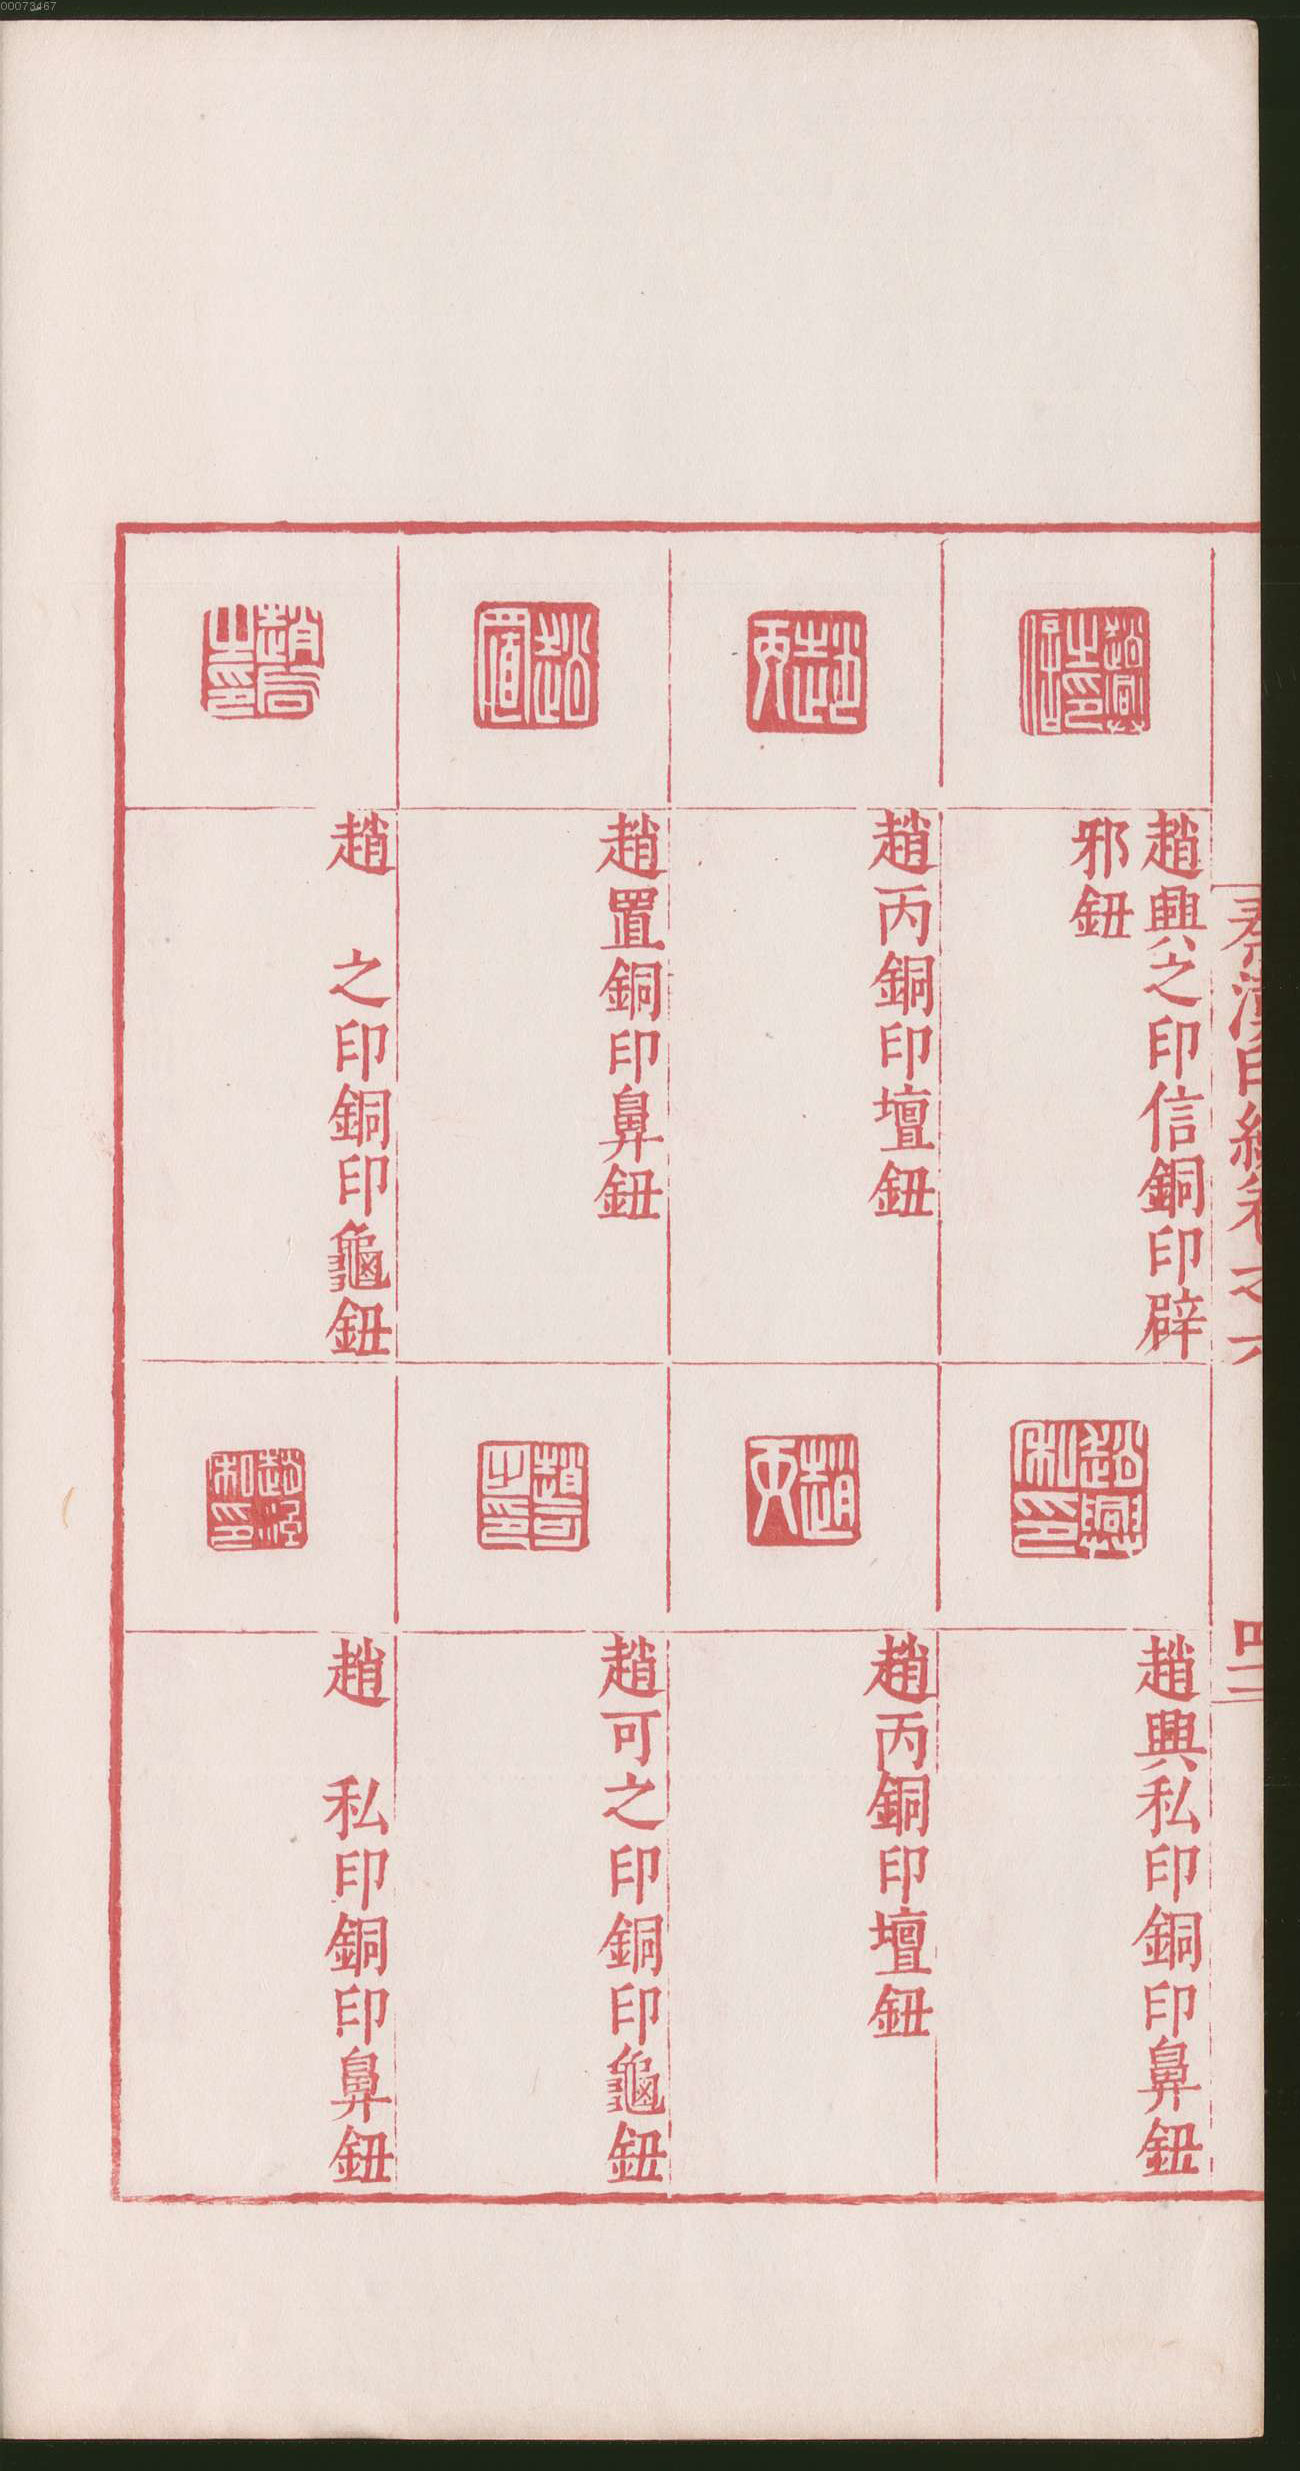 00073467
秦漢印統卷之六
四二
趙興之印信銅印辟
邪鈕
趙丙銅印壇鈕
趙置銅印鼻鈕
趙 之印銅印龜鈕
趙興私印銅印鼻鈕
趙丙銅印壇鈕
趙可之印銅印龜鈕
趙 私印銅印鼻鈕